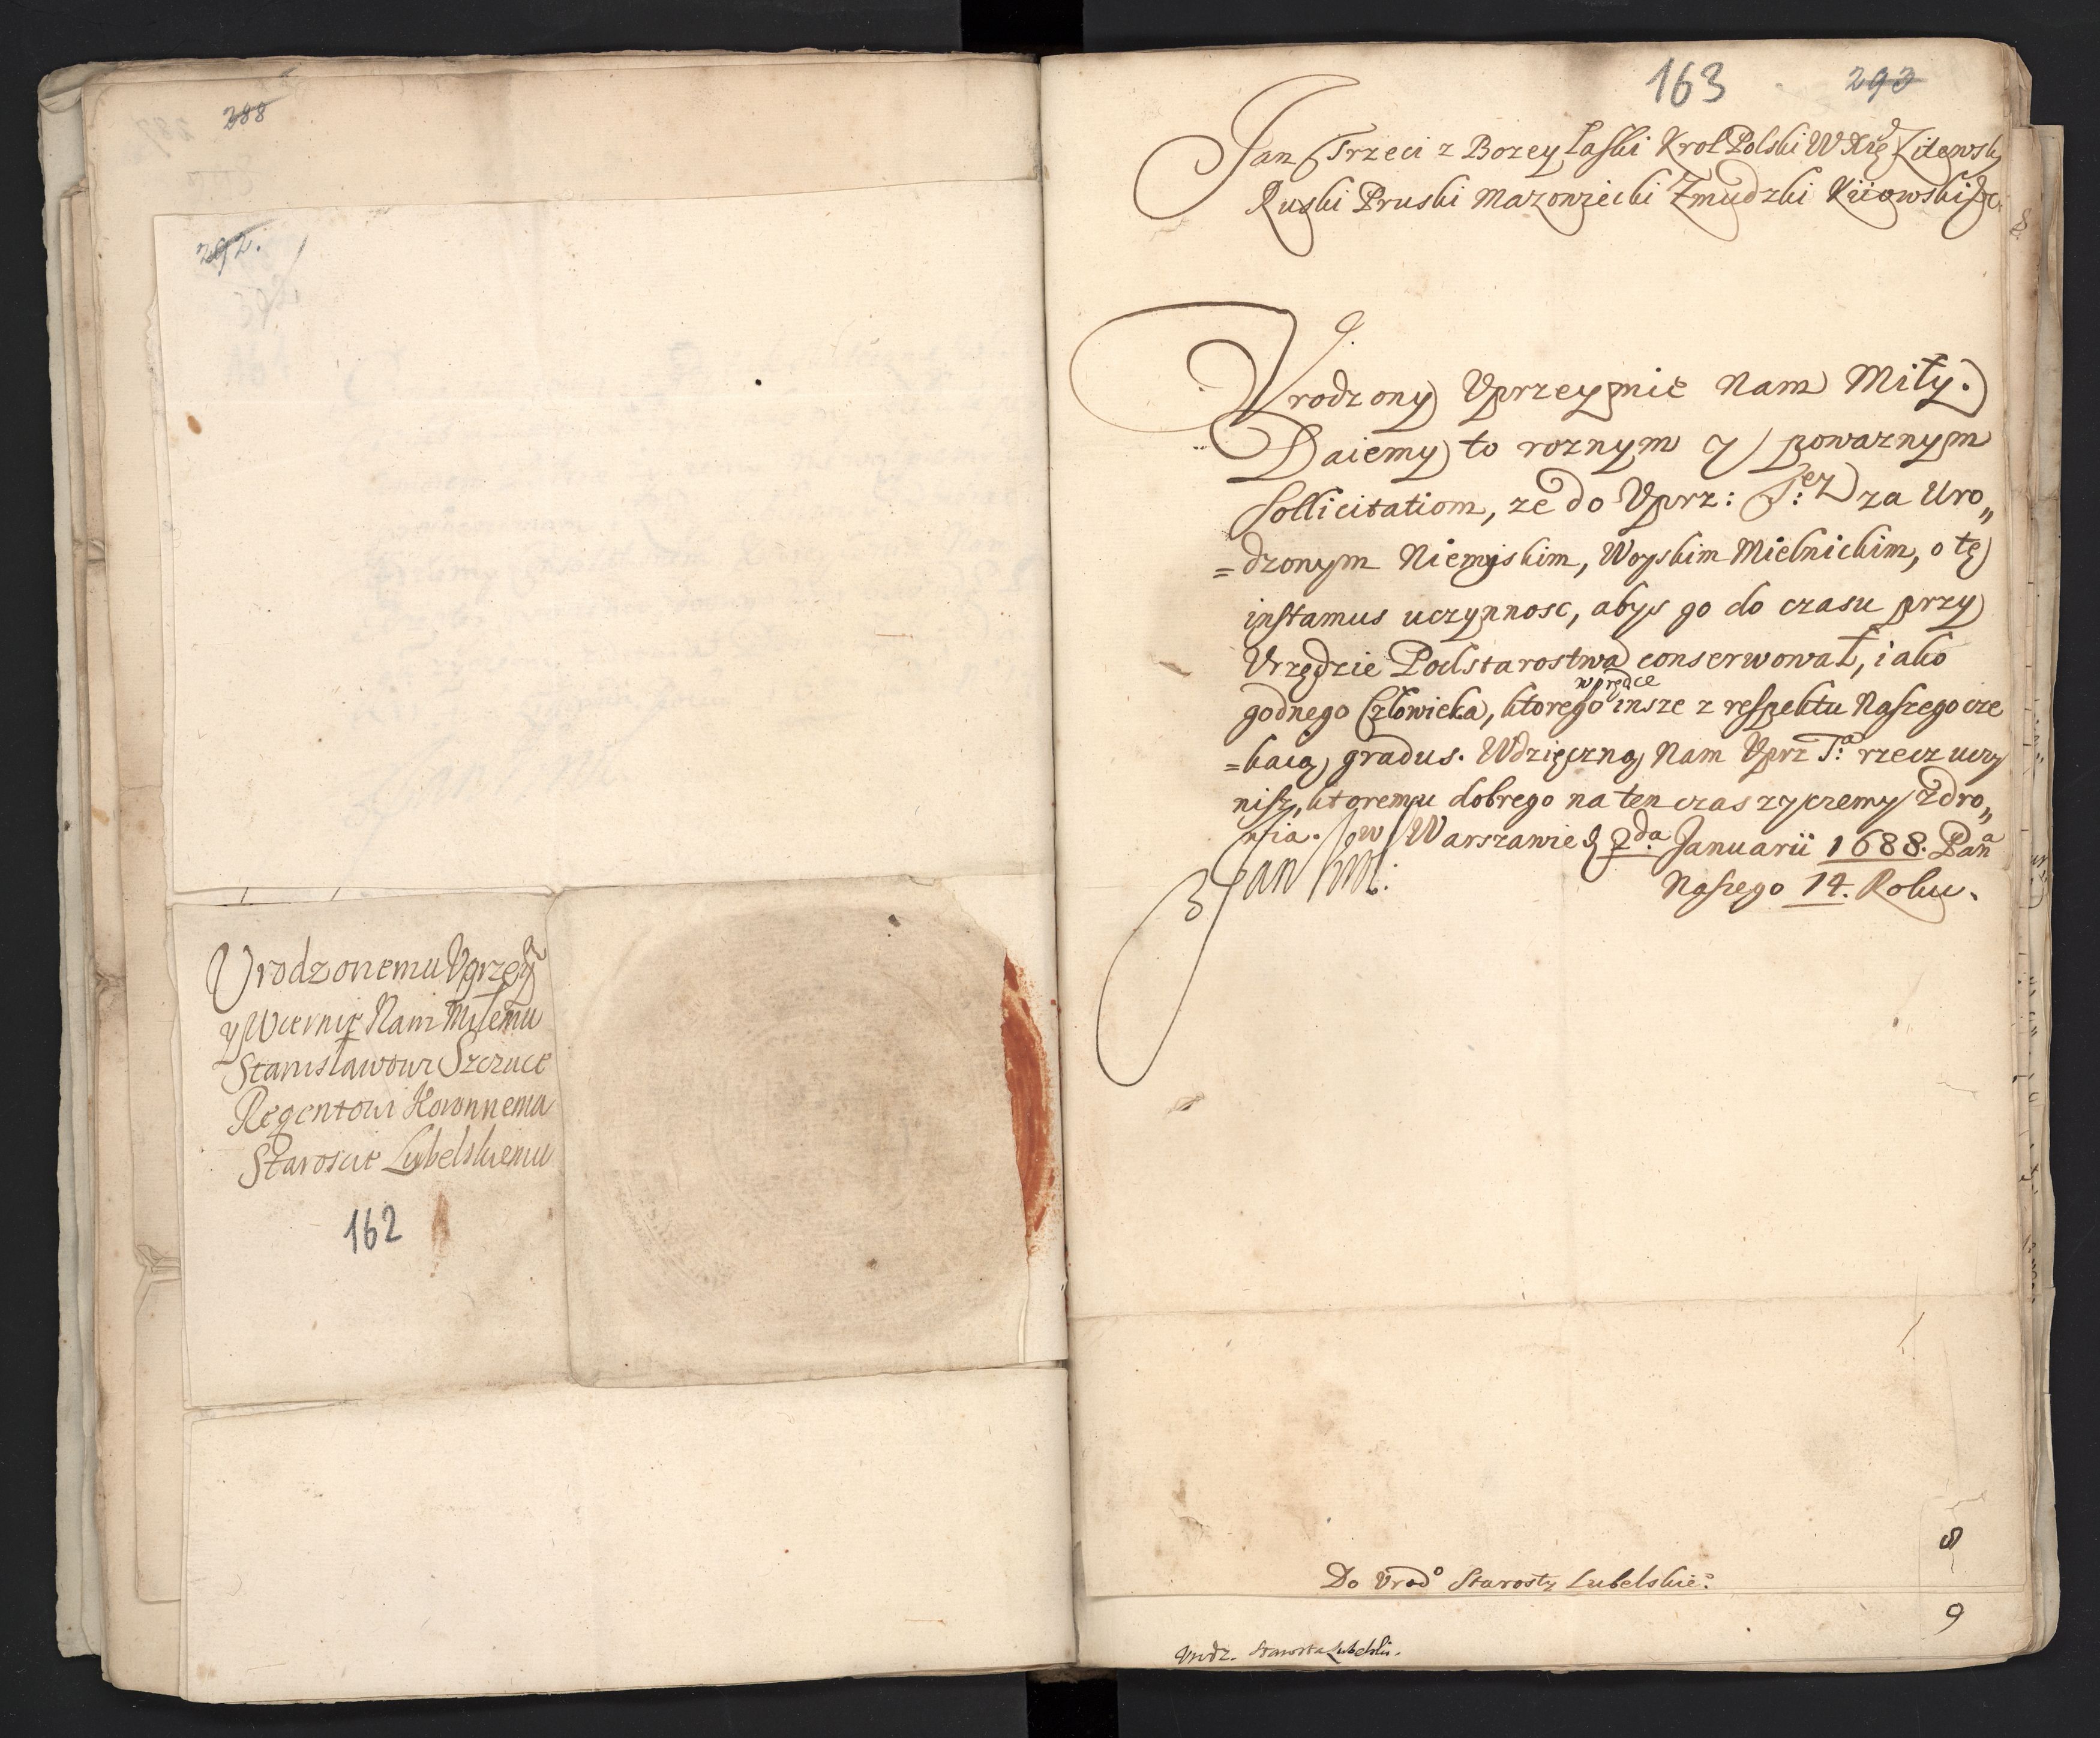 288
292.
Vrodzonemu Vprzey
y Wiernie Nam Miłemu
Stanisławowi Szczuce
Regentowi Koronnemu
Staroscie Lubelskiemu
162
163 293
Jan Trzeci z Bozey Łaski Krol Polski W Xże Litewsk
Ruski Pruski Mazowiecki Zmudzki Kiiowski &c.
Vrodzony Vprzeymie Nam Miły.
Daiemy to roznym y powaznym
Sollicitatiom, ze do Vprz: T:ez za Uro„
=dzonym Niemyskim, Woyskim Mielnickim, o tę
instamus uczynnosc, abys go do czasu przy
Vrzędzie Podstarostwa conserwował, iako
godnego Człowieka, ktorego wprędce insze z respektu Naszego cze
=kaią gradus. Wdzięczną Nam Vprz T:a rzecz uczy
nisz, ktoremu dobrego na ten czas zyczemy Zdro„
wia. w Warszawie d 2da Januarii 1688. Pana
Naszego 14. Roku.
Jan Krol.
8
Do Vrodo Starosty Lubelskieo
9
Vrodz. Starosta Lubelski.